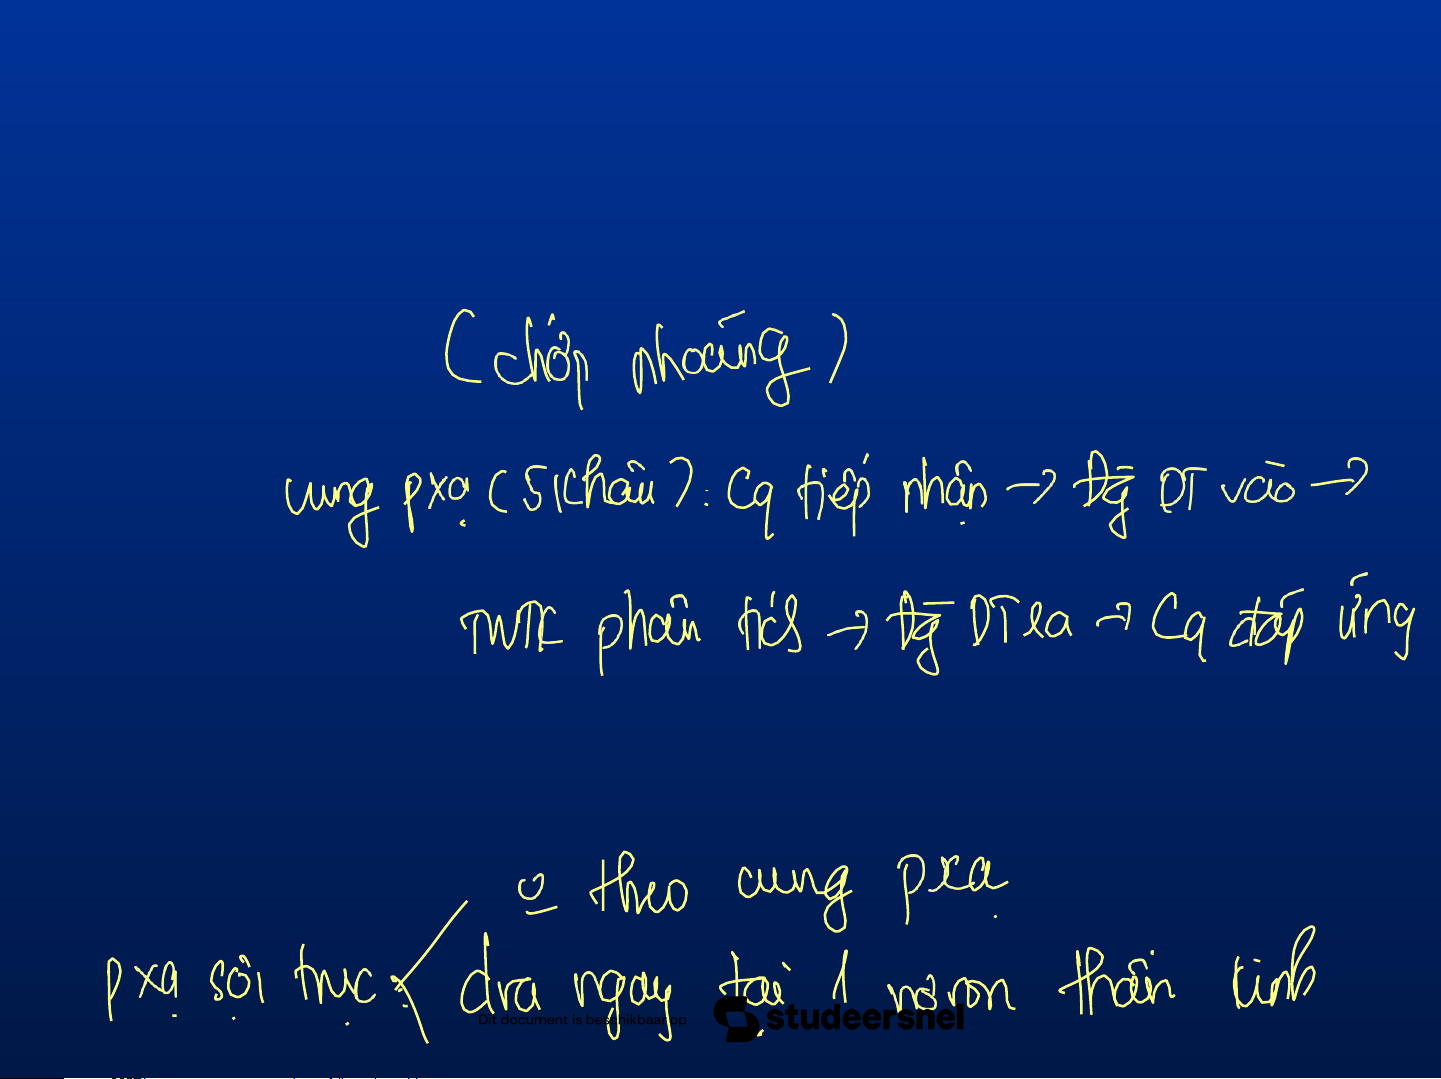 (chớp nhoáng)
cung pxạ (5 khâu): Cq tiếp nhận → Đg DT vào →
TWTK phân tích → Đg DT ra → Cq đáp ứng
theo cung pxạ
pxạ sợi trục: dra ngay tại 1 nơron thần kinh
Dit document is beschikbaar op studeersnel